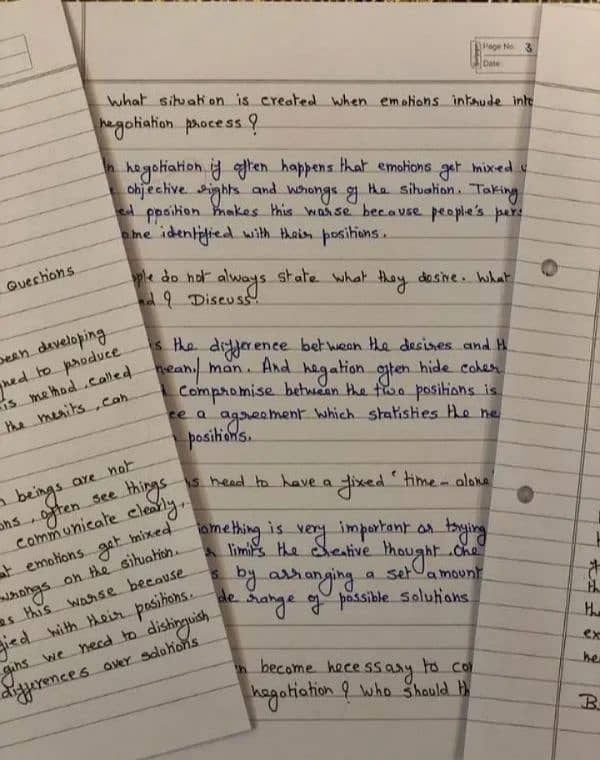 Page No. 3
Date
What situation is created when emotions intrude into
negotiation process ?
In negotiation if often happens that emotions get mixed
objective rights and wrongs of the situation. Taking
ed position makes this worse because people's per
ome identified with their positions.
ople do not always state what they desire. What
nd ? Discuss.
is the difference between the desires and
mean/ man. And negation often hide
Compromise between the two positions is
ee a agreement which statisties the ne
positions.
is need to have a fixed "time-alone"
something is very important as trying
limits the creative thought. One
by arranging a set amount
de range of possible solutions
become necessary to co
negotiation ? who should th
Questions
been developing
ned to produce
is method, called
the merits, can
n beings are not
ons, often see things
communicate clearly.
at emotions get mixed
wrongs on the situation.
es this worse because
fied with their positions.
gins we need to distinguish
differences over solutions
th
th
ex
he
B.